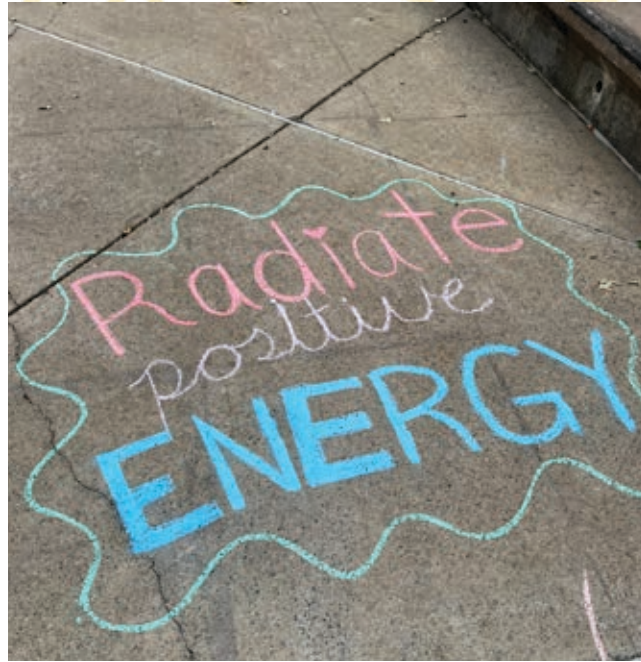 Radiate
positive
ENERGY